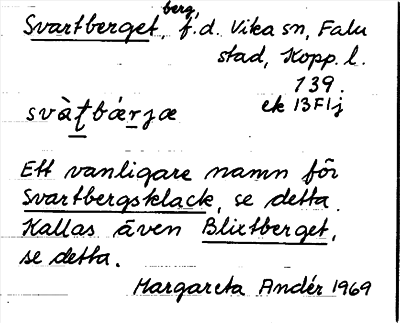 Svartberget, berg, f.d. Vika sn, Falu
stad, Kopp. l.
139.
ek 13F1j
svàt̲bær̲jæ
Ett vanligare namn för
Svartbergsklack, se detta.
Kallas även Blixtberget,
se detta.
Margareta Andér 1969